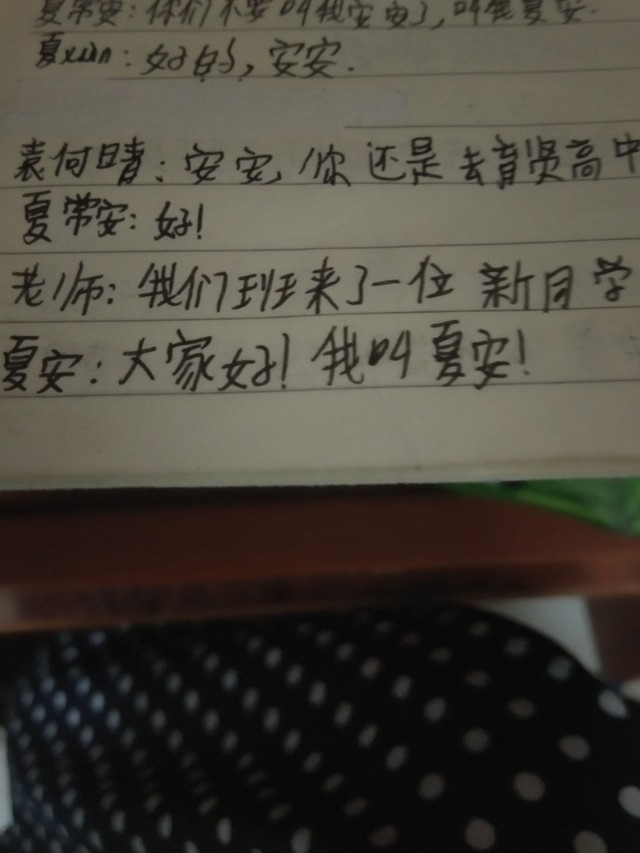 夏常安:你们不要叫我安安了,叫我夏安.
夏xun:好的,安安.
袁何晴:安安,你还是去育贤高中
夏常安:好!
老师:我们班来了一位新同学
夏安:大家好!我叫夏安!